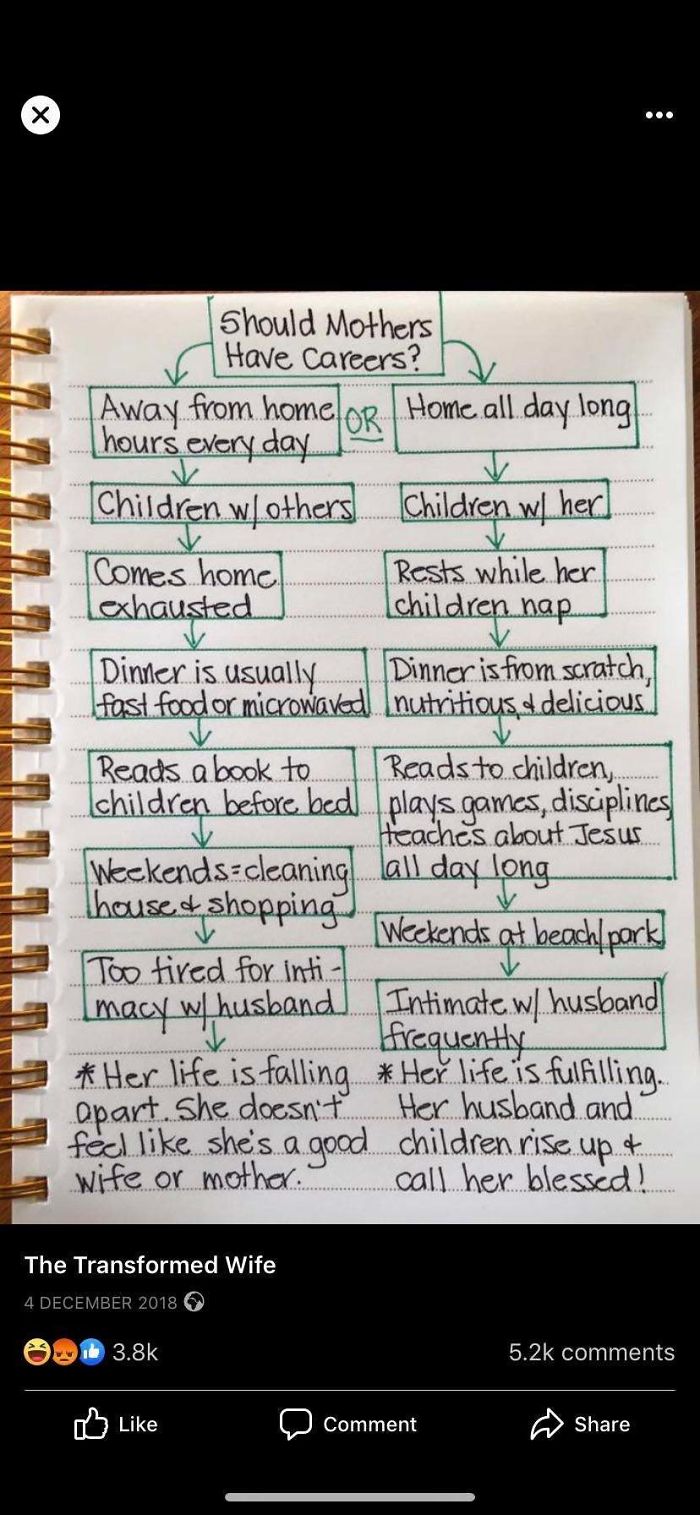 Should Mothers
Have Careers?
Away from home
hours every day
OR
Home all day long
Children w/ others
Children w/ her
Comes home
exhausted
Rests while her
children nap
Dinner is usually
fast food or microwaved
Dinner is from scratch,
nutritious & delicious
Reads a book to
children before bed
Reads to children,
plays games, disciplines,
teaches about Jesus
all day long
Weekends=cleaning
house & shopping
Weekends at beach/park
Too tired for inti-
macy w/ husband
Intimate w/ husband
frequently
* Her life is falling
apart. She doesn't
feel like she's a good
wife or mother.
* Her life is fulfilling.
Her husband and
children rise up &
call her blessed!
The Transformed Wife
4 DECEMBER 2018
3.8k
5.2k comments
Like
Comment
Share